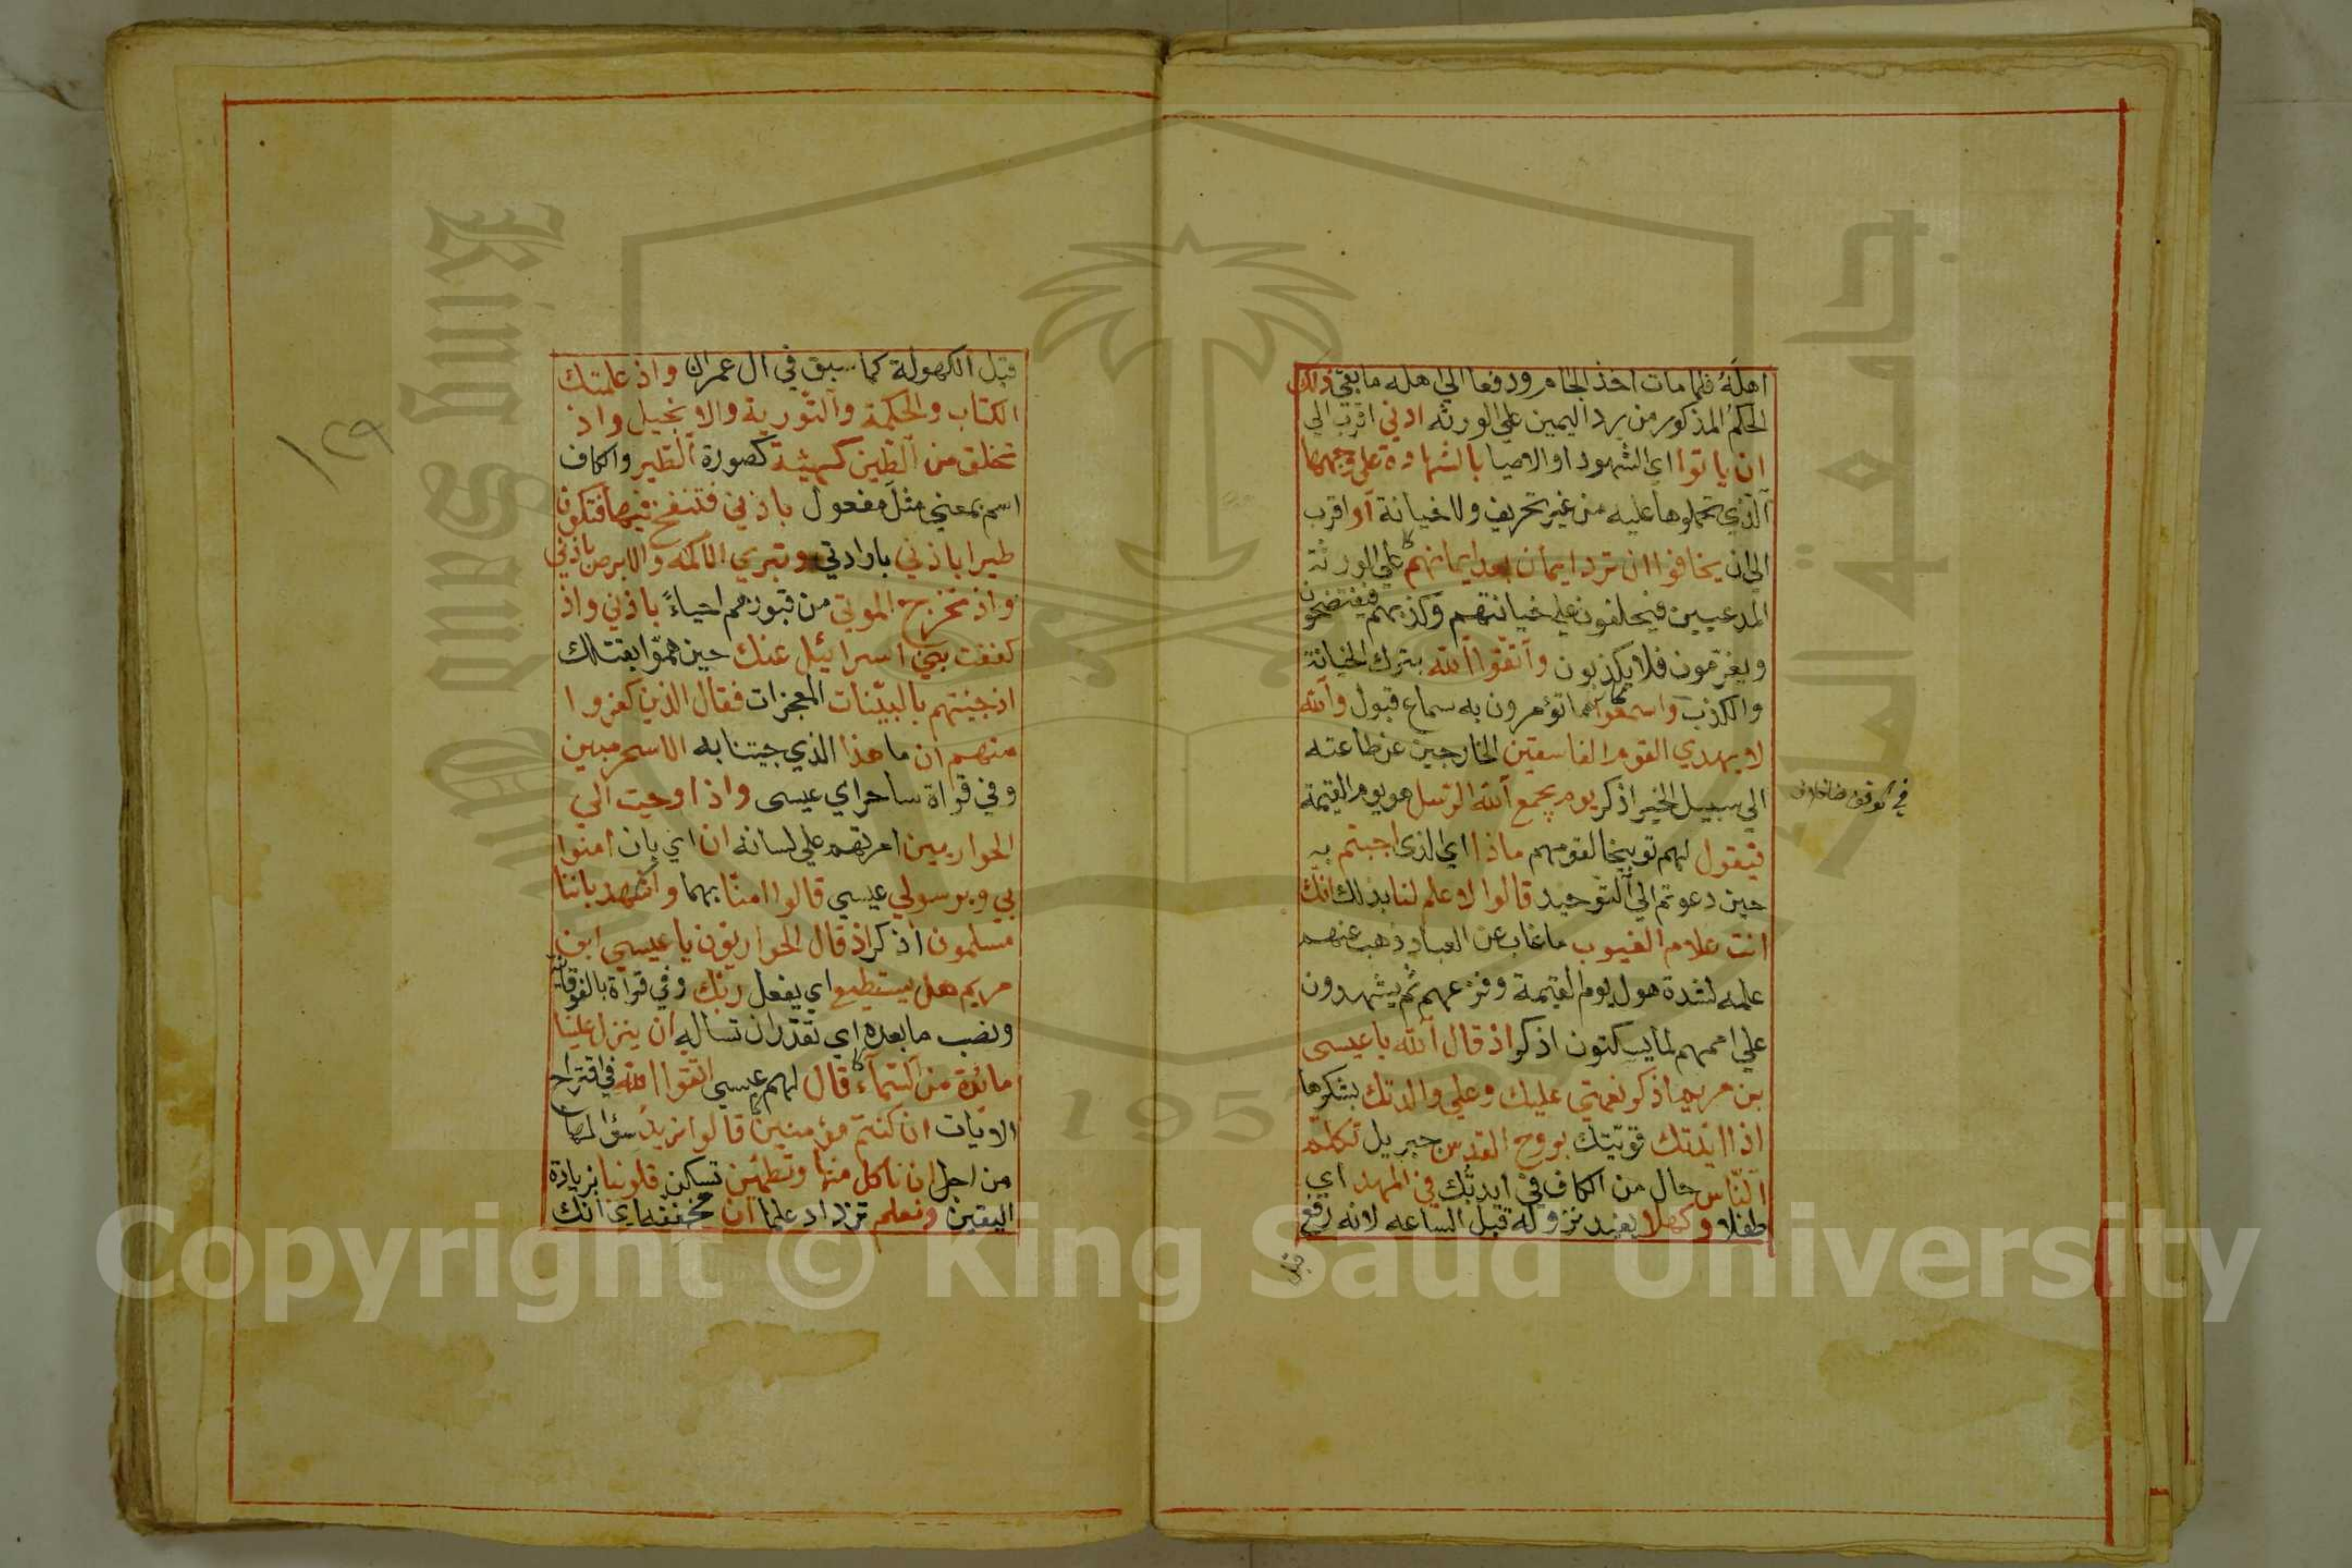 اهله فلما مات اخذ الجام ودفعا الي اهله ما بقي ذلك
الحكم المذكور من رد اليمين علي الورثه ادني اقرب الي
ان ياتوا اي الشهود او الاوصيا بالشهادة علي وجهها
الذي تحملوها عليه من غير تحريف ولا خيانة او اقرب
الي ان يخافوا ان ترد ايمان بعد ايمانهم علي الورثة
المدعيين فيحلفون علي خيانتهم وكذبهم فيفتضحون
ويغرمون فلا يكذبون واتقوا الله بترك الخيانة
والكذب واسمعوا ما تؤمرون به سماع قبول والله
لا يهدي القوم الفاسقين الخارجين عن طاعته
الي سبيل الخير اذكر يوم يجمع الله الرسل هو يوم القيمة
فيقول لهم توبيخا لقومهم ماذا اي الذي اجبتم به
حين دعوتم الي التوحيد قالوا لا علم لنا بذلك انك
انت علام الغيوب ما غاب عن العباد ذهب عنهم
علمه لشدة هول يوم القيمة وفزعهم ثم يشهدون
علي اممهم لما يسكتون اذكر اذ قال الله يا عيسى
بن مريم اذكر نعمتي عليك وعلي والدتك بشكرها
اذ ايدتك قويتك بروح القدس جبريل تكلم
الناس حال من الكاف في ايدتك في المهد اي
طفلا وكهلا يفيد نزوله قبل الساعه لانه رفع
قبل
قبل الكهولة كما سبق في ال عمران واذ علمتك
الكتاب والحكمة والتورية والانجيل واذ
تخلق من الطين كهيئة كصورة الطير والكاف
اسم بمعني مثل مفعول باذني فتنفخ فيها فتكون
طيرا باذني بارادتي وتبري الاكمه والابرص باذني
واذ تخرج الموتي من قبورهم احياءً باذني واذ
كففت بني اسرائيل عنك حين هموا بقتلك
اذ جئتهم بالبينات المعجزات فقال الذين كفروا
منهم ان ما هذا الذي جيتنا به الا سحر مبين
وفي قراة ساحر اي عيسى واذ اوحيت الي
الحواريين امرتهم علي لسانه ان اي بان امنوا
بي وبرسولي عيسي قالوا امنا بهما واشهد باننا
مسلمون اذكر اذ قال الحواريون يا عيسي ابن
مريم هل يستطيع اي يفعل ربك وفي قراة بالفوقانية
ونصب ما بعده اي تقدر ان تساله ان ينزل علينا
مائدة من السماء قال لهم عيسي اتقوا الله في اقتراح
الايات ان كنتم مؤمنين قالوا نريد سؤالها
من اجل ان ناكل منها وتطمئن تسكن قلوبنا بزيادة
اليقين ونعلم نزداد علما ان مخففه اي انك
١٢٩